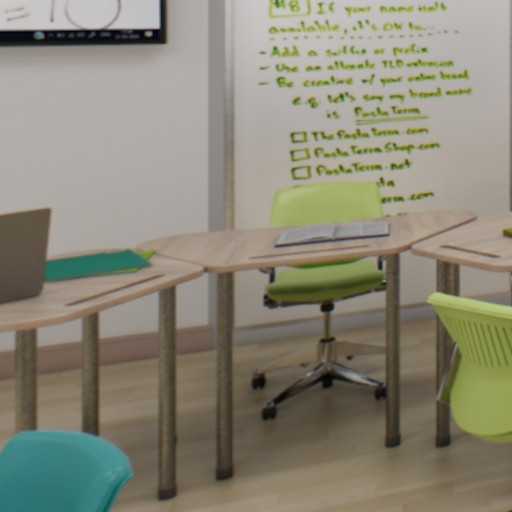 #8 If your name isn't
available, it's OK to...
- Add a suffix or prefix
- Use an alternate TLD extension
- Be creative w/ your brand
e.g. let's say my brand name
is PastaTerra
☐ ThePastaTerra.com
☐ PastaTerraShop.com
☐ PastaTerra.net
ta
rra.com